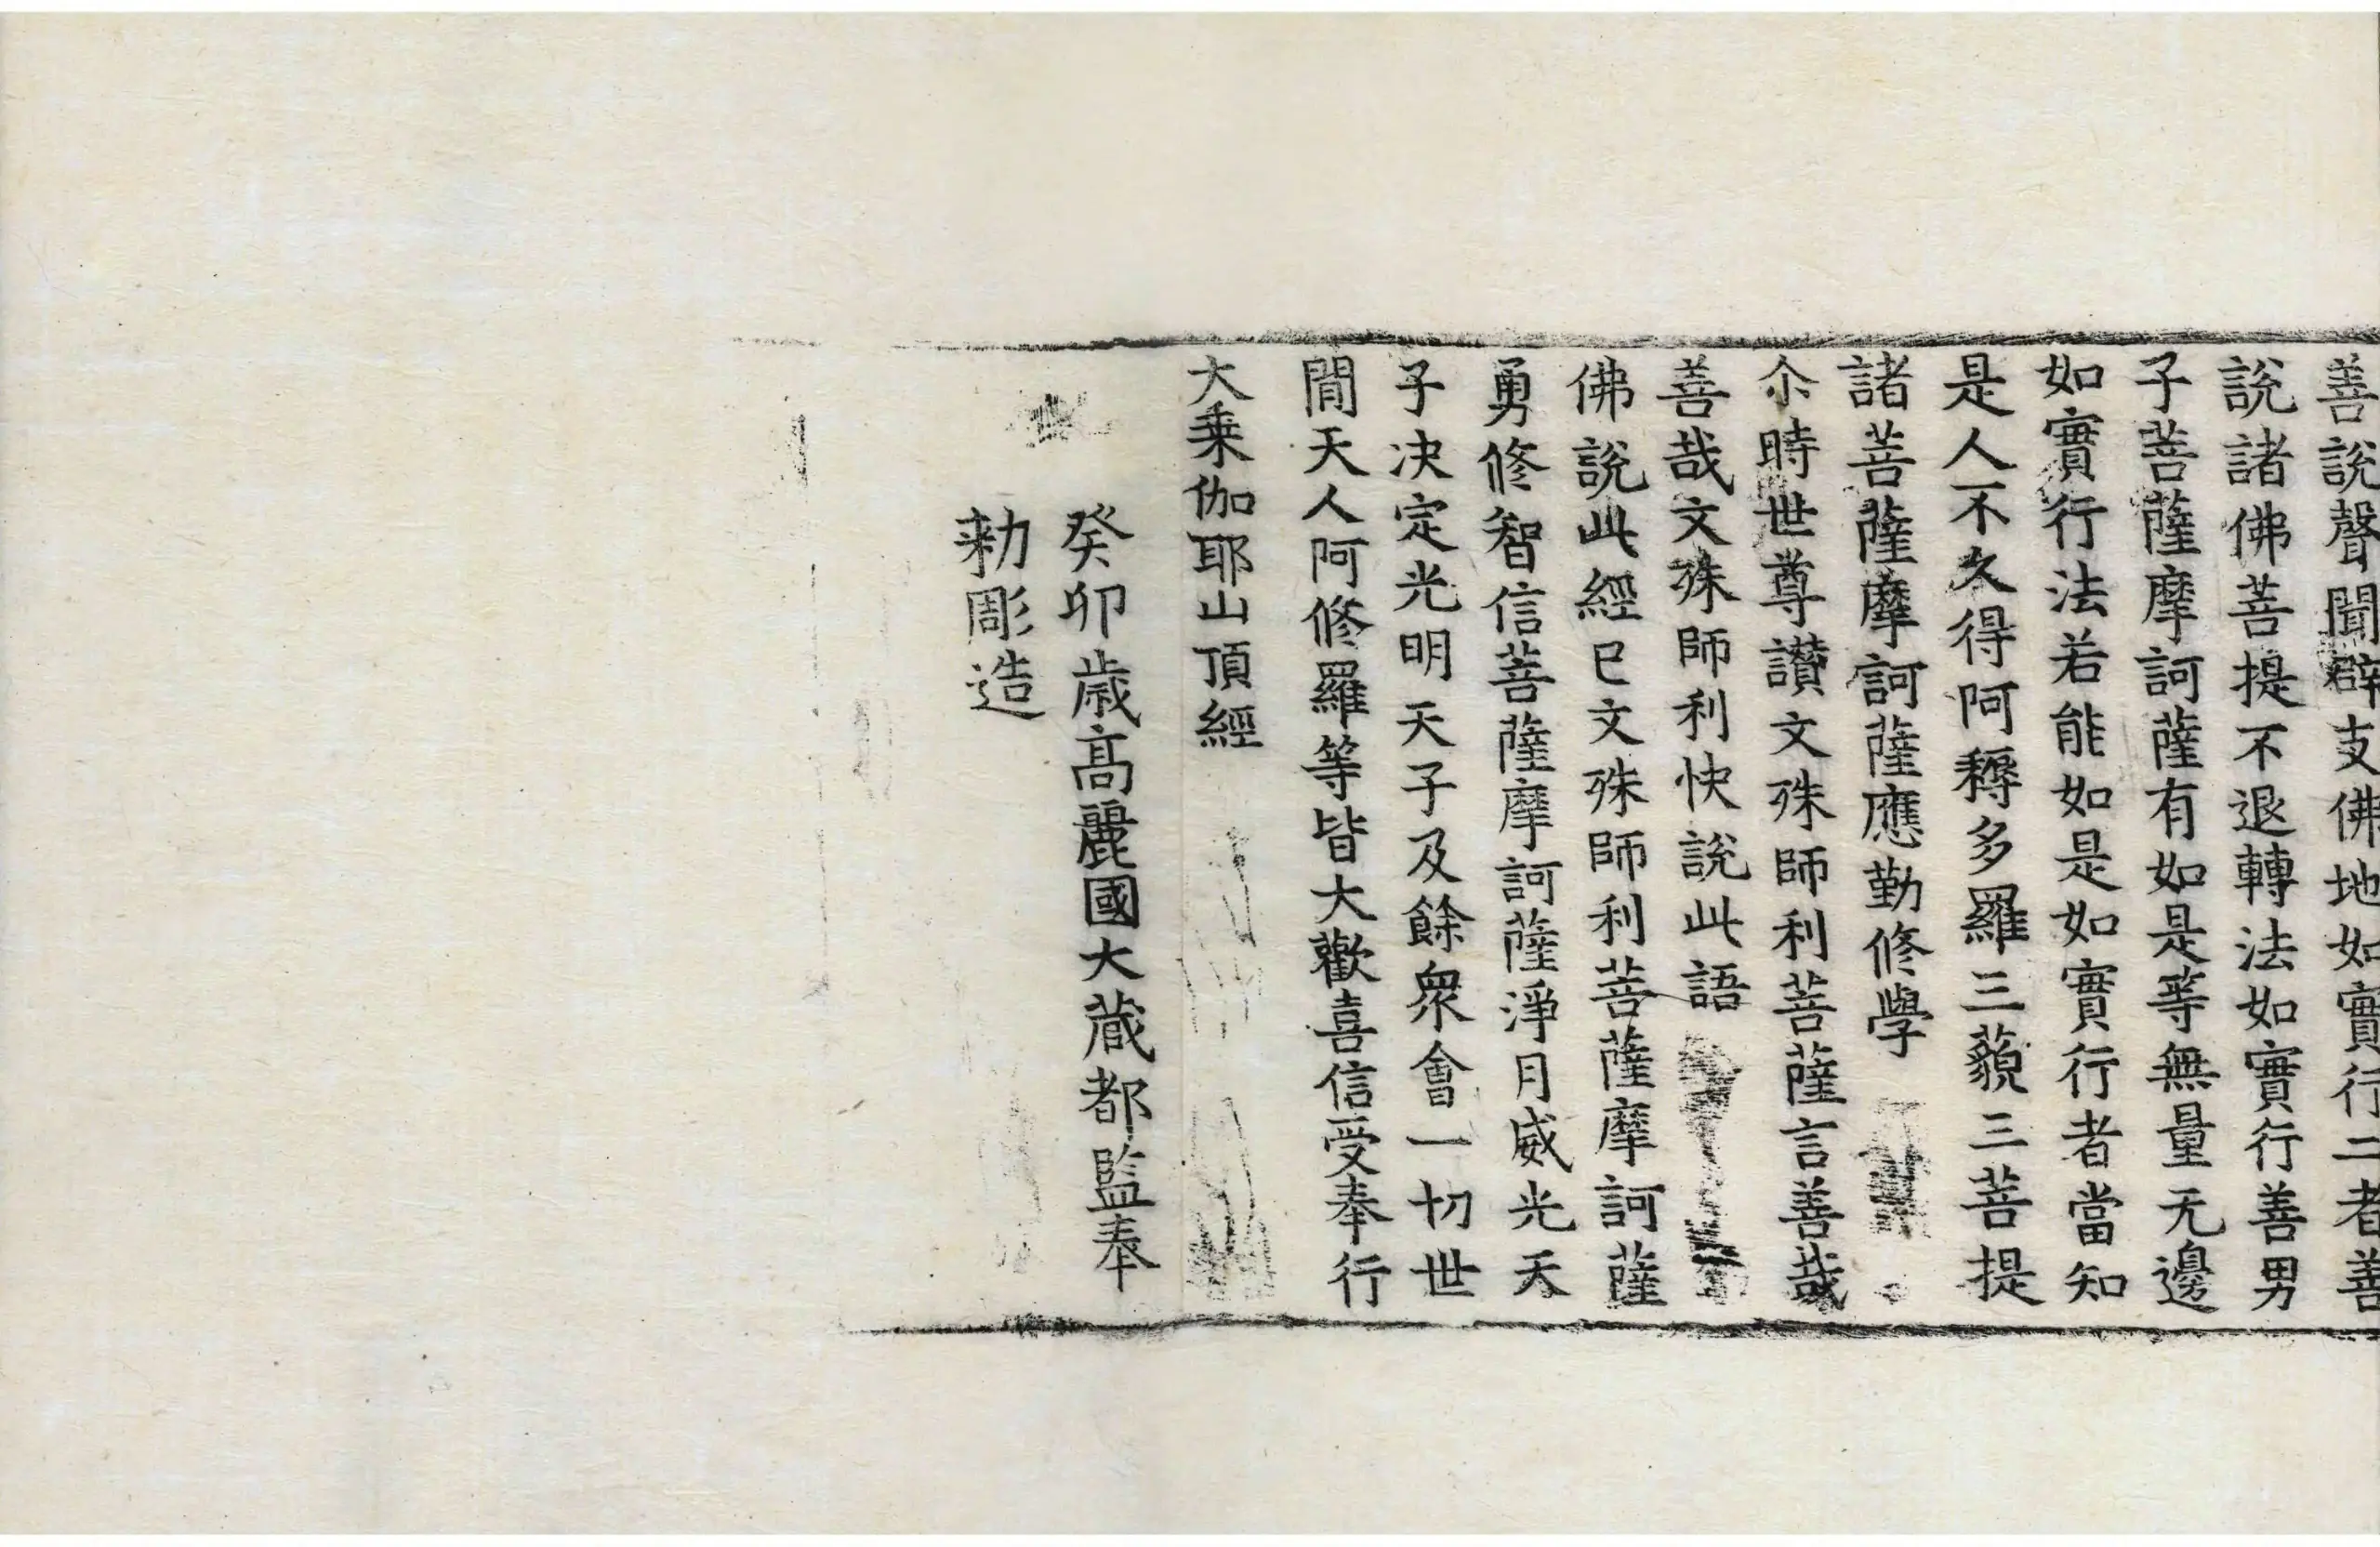 善說聲聞辟支佛地如實行二者善
說諸佛菩提不退轉法如實行善男
子菩薩摩訶薩有如是等無量无邊
如實行法若能如是如實行者當知
是人不久得阿耨多羅三藐三菩提
諸菩薩摩訶薩應勤修學
尒時世尊讃文殊師利菩薩言善哉
善哉文殊師利快說此語
佛說此經已文殊師利菩薩摩訶薩
勇修智信菩薩摩訶薩淨月威光天
子決定光明天子及餘衆會一切世
閒天人阿修羅等皆大歡喜信受奉行
大乗伽耶山頂經
癸卯歳高麗國大藏都監奉
勑彫造